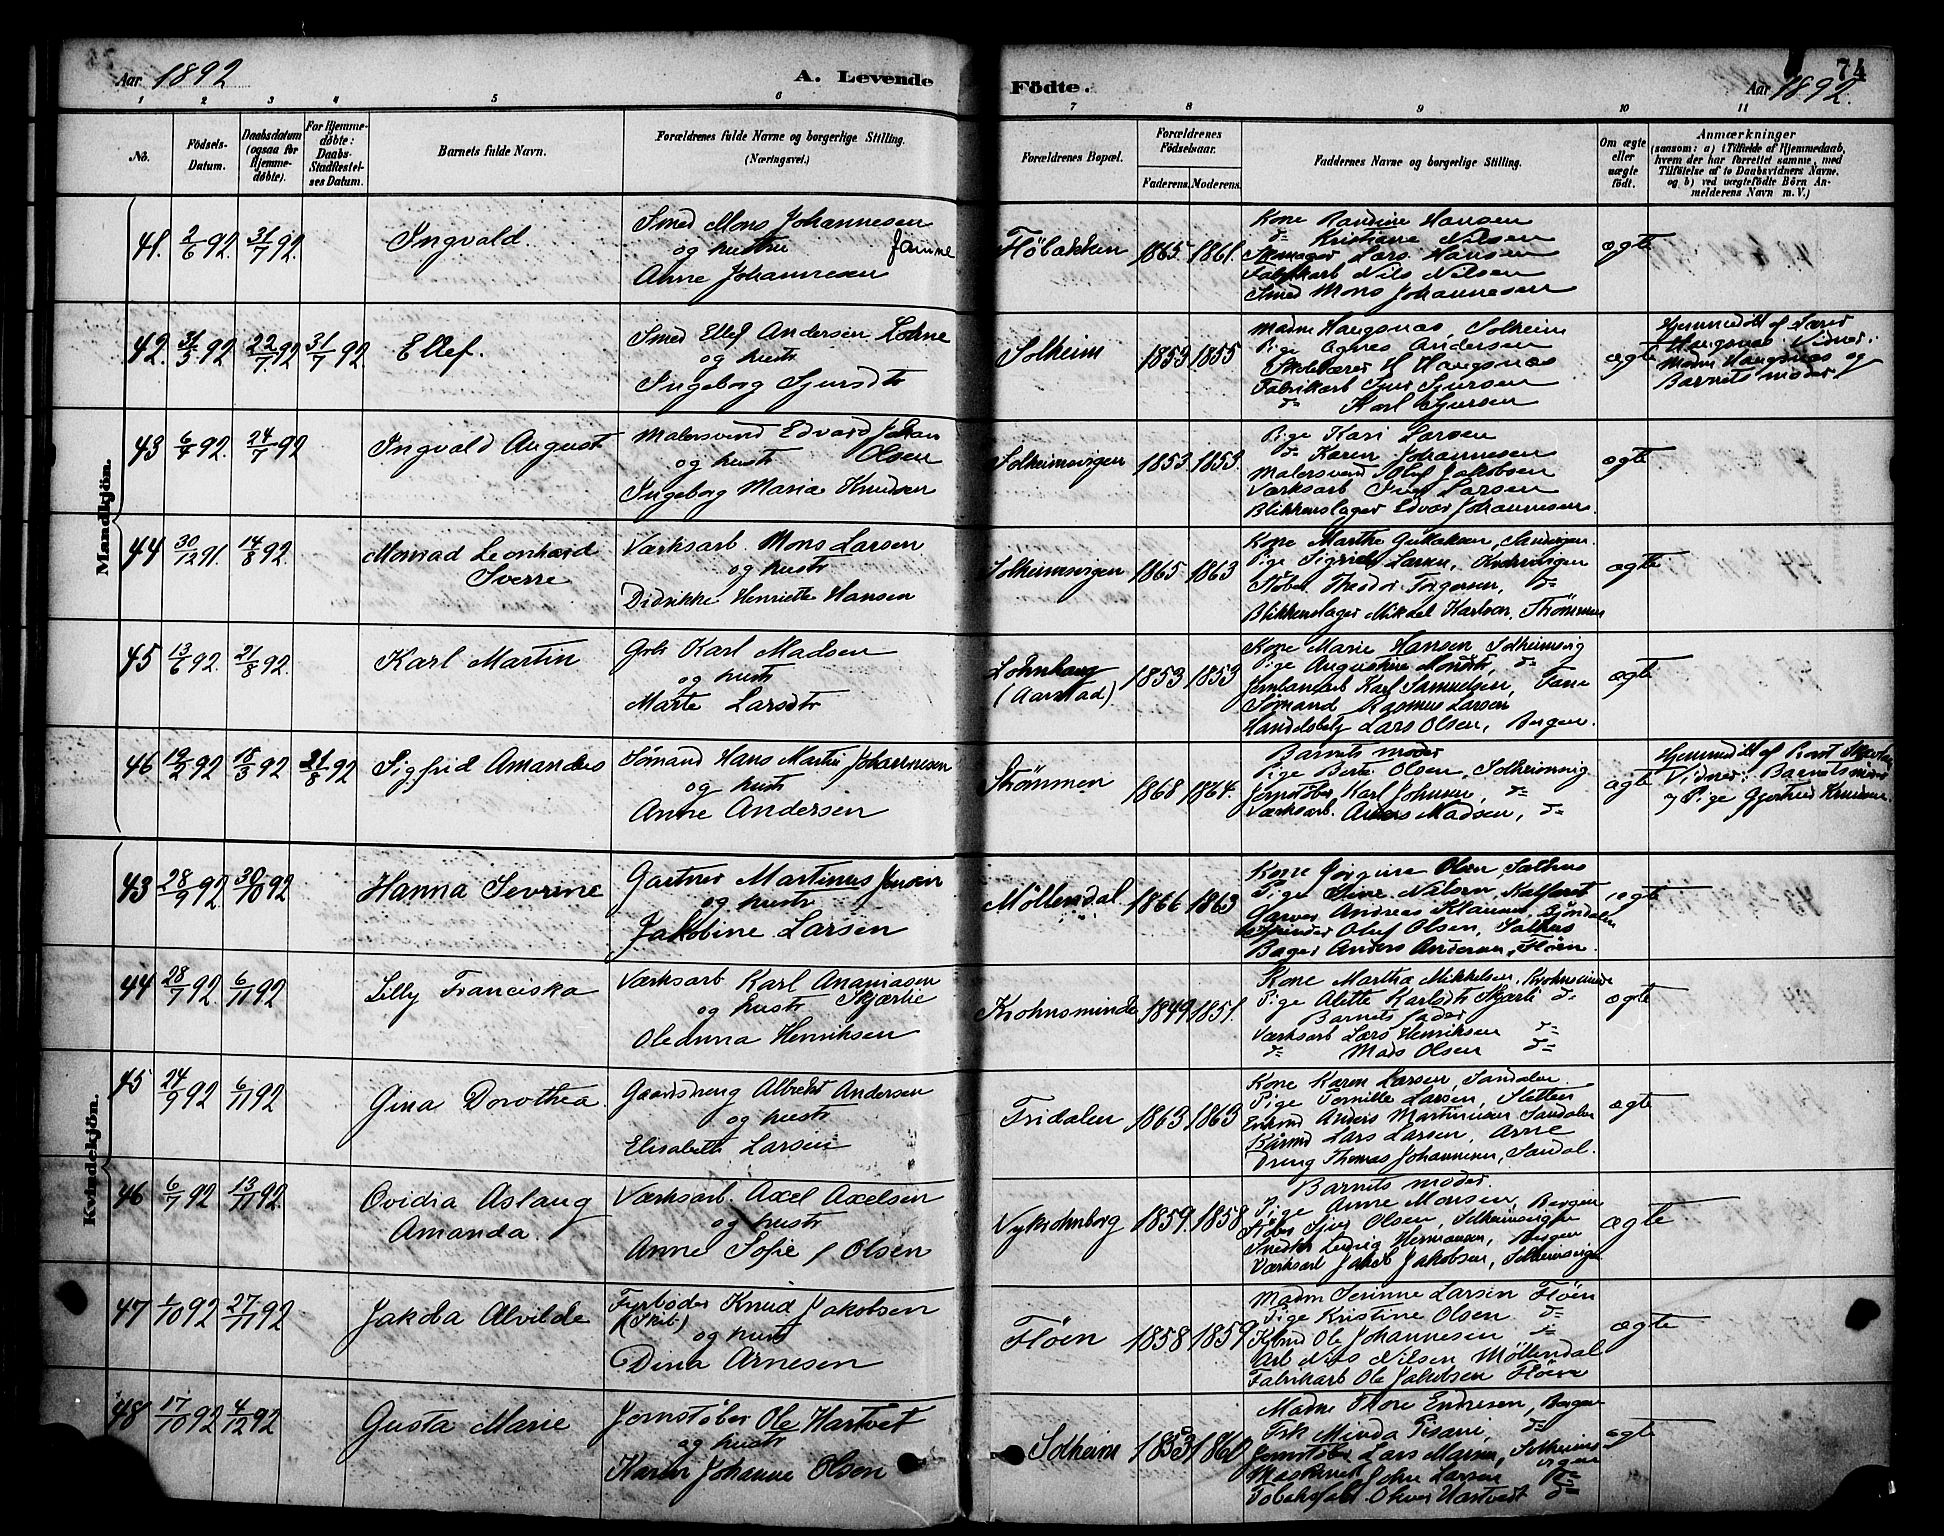 Aar 1892
A. Levende
Födte.
74
Aar 1892.
1 2 3 4 5 6 7 8 9 10 11
No.
Födsels-
Datum.
Daabsdatum
(ogsaa for
Hjemme-
döbte).
For Hjemme-
døbte:
Daabs-
Stadfæstel-
ses Datum.
Barnets fulde Navn.
Forældrenes fulde Navne og borgerlige Stilling.
(Næringsvei.)
Forældrenes Bopæl.
Forældrenes
Födselsaar.
Faderens. Moderens.
Faddernes Navne og borgerlige Stilling.
Om ægte
eller
uægte
födt.
Anmærkninger
(saasom: a) i Tilfælde af Hjemmedaab,
hvem der har forrettet samme, med
Tilföielse af to Daabsvidners Navne.
og b) ved uægtefödte Börn An-
melderens Navn m. V.)
Mandkjön.
41. 2/6 92. 31/7 92.
Ingvald.
Smed Mons Johannesen
og hustru
Anne Johannesen
Flöbakken 1865. 1861.
Kone Randine Hansen
d= Kristiane Nilsen
Lars Hansen
Fabrikarb Nils Nilsen
Smed Mons Johannesen
ægte
42. 31/5 92 22/7 92 31/7 92.
Ellef.
Smed Ellef Andersen Lohne
og hustr
Ingeborg Sjursdtr
Solheim 1853 1855
Madm Haugsnæs, Solheim
Pige Agnes Andersen
Skolelærer H Haugsnæs
Fabrikarb Sjur Sjursen
d= Karl Sjursen
ægte
Hjemmedöbt af Lærer
Haugsnæs. Vidner:
Madm Haugsnæs og
Barnets moder
43 6/4 92. 24/7 92
Ingvald August
Malersvend Edvard Johan
Olsen
og hustr
Ingeborg Maria Knudsen
Solheimsvigen 1853. 1853.
Pige Kari Larsen
d= Karen Johannesen
Malersvend Oluf Jakobsen
Værksarb Iver Larsen
Blikkenslager Edvar Johannesen
ægte
44 30/12 91. 14/8 92.
Monrad Leonhard
Sverre
Værksarb. Mons Larsen
og hustr
Didrikke Henriette Hansen
Solheimsvigen 1865 1863
Kone Marthe Gullaksen,
Pige Sigrid Larsen,
Støber Theodor Torgersen, d=
Blikkenslager Mikael Karlsen, Strømmen
ægte
45 13/6 92. 21/8 92.
Karl Martin
Grb Karl Madsen
og hustr
Marte Larsdtr
Lohnhaug
(Aarstad) 1853 1853
Kone Marie Hansen Solheimsvig
Pige Augustine Monsdtr, d=
Jernbanearb Karl Samuelsen, Fane
Sömand Rasmus Larsen
Handelsbetj Lars Olsen, Bergen.
ægte
46 19/2 92 18/3 92 21/8 92
Sigfrid Amandus
Sömand Hans Martin Johannesen
og hustr
Anne Andersen
Strømmen 1868 1864.
Barnets moder
Pige Berte Olsen, Solheimsvig
Jernstøber Karl Johnsen, d=
Værksarb. Anders Madsen, d=
ægte
Hjemmedöbt af
Vidner: Barnets moder
og Pige Gjertrud Knudsen
Kvindekjön.
43 28/9 92 30/10 92
Hanna Severine
Gartner Martinus Jensen
og hustr
Jakobine Larsen
Möllendal 1866 1863
Kone Jørgine Olsen Salhus
Pige Sine Nilsen Kalfaret
Garver Andreas Klausen,
Oluf Olsen, Salhus
Bager Anders Andersen, Fløen.
ægte
44 28/7 92. 6/11 92
Lilly Franciska
Værksarb Karl Ananiasen
Skjærlie
og hustr
Oledina Henriksen
Krohnsminde 1849. 1851.
Kone Martha Mikkelsen, Krohnsminde
Pige Alette Karlsdtr Skjærli d=
Barnets fader
Værksarb Lars Henriksen d=
d= Mads Olsen d=
ægte
45 24/9 92 6/11 92
Gina Dorothea.
Gaardsdreng Albrekt Andersen
og hustr
Elisabeth Larsen
Fridalen 1863. 1863
Kone Karen Larsen, Sandalen.
Pige Pernille Larsen, Sletten
Anders Martinusen Sandalen
Lars Larsen, Arne
Dreng Thomas Johannesen, Sandal.
ægte
46 6/7 92 13/11 92.
Ovidia Aslaug
Amanda.
Værksarb. Axel Axelsen
og hustr
Anne Sofie Olsen
Nykrohnborg 1859. 1858
Barnets moder.
Pige Anne Monsen, Bergen
Støber Sjur Olsen, Solheimsvigen
Snedker Ludvig Hermansen, Bergen
Værksarb Jakob Jakobsen, Solheimsvigen
ægte
47 1/10 92 27/11 92
Jakoba Alvilde
Fyrböder Knud Jakobsen
(Skib.)
og hustr
Dina Arnesen
Flöen 1858 1859
Madm Serinne Larsen Flöen
Pige Kristine Olsen d=
Ole Johannesen d=
Arb Nils Nilsen Möllendal
Fabrikarb Ole Jakobsen Flöen
ægte
48 17/10 92 4/12 92
Gusta Marie
Jernstøber Ole Hartvet
og hustr
Karen Johanne Olsen
Solheim 1853 1860
Madm Thore Endresen, Bergen
Frk Minda Pisani, d=
Jernstøber Lars Monsen, Solheims
vigen
John Larsen d=
Oskar Hartvedt d=
ægte